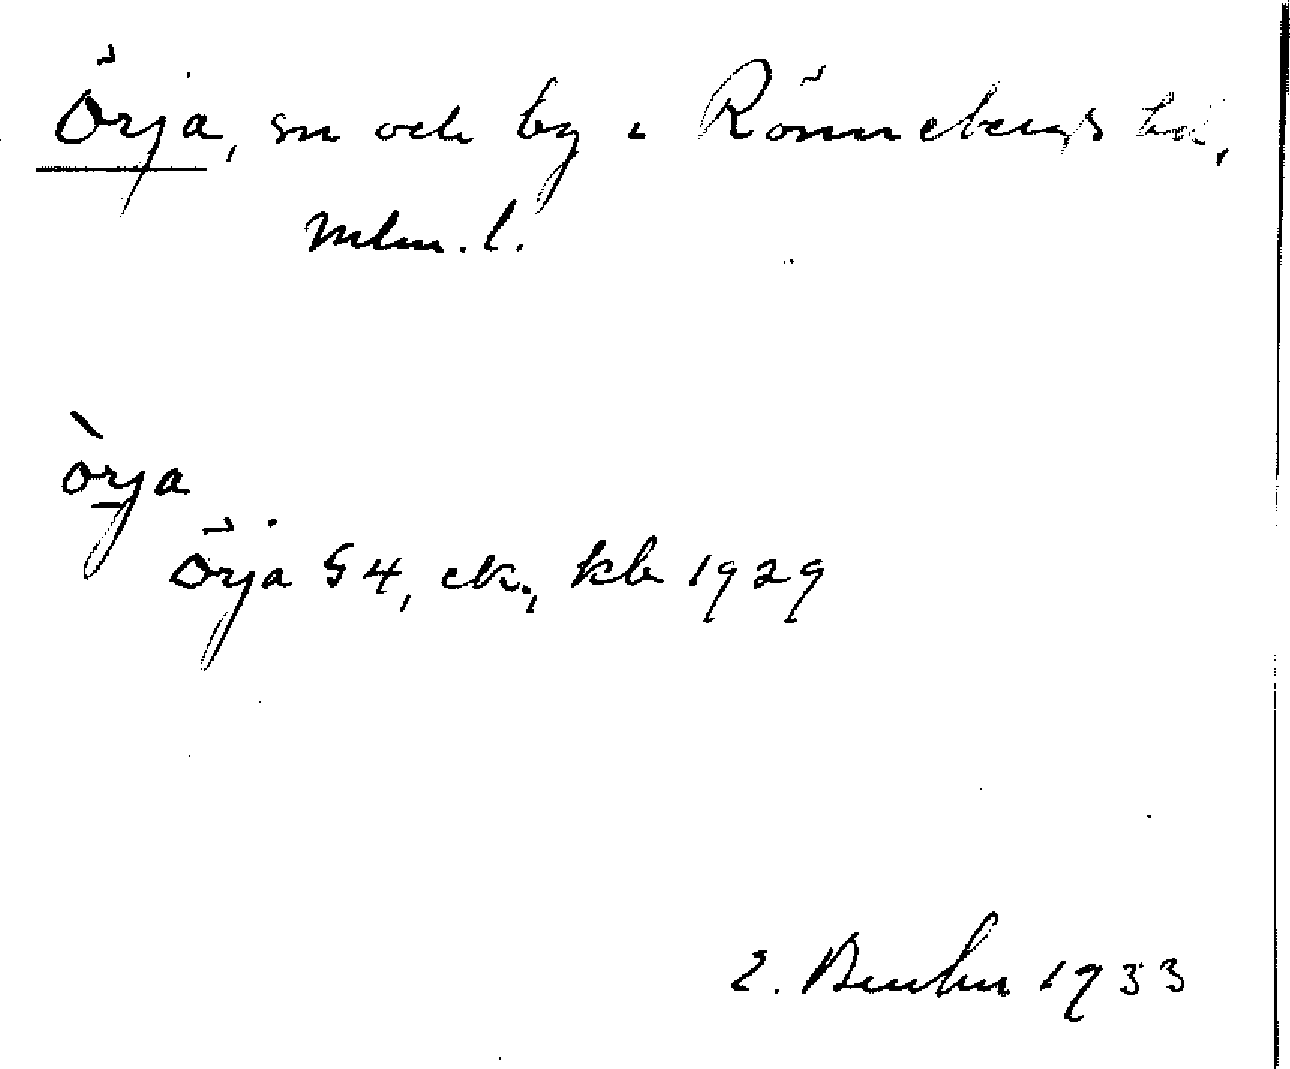 Örja, sn och by i Rönnebergs hd,
Mlm. l.
òrja
Örja S4, ek., kb 1929
E. 1933